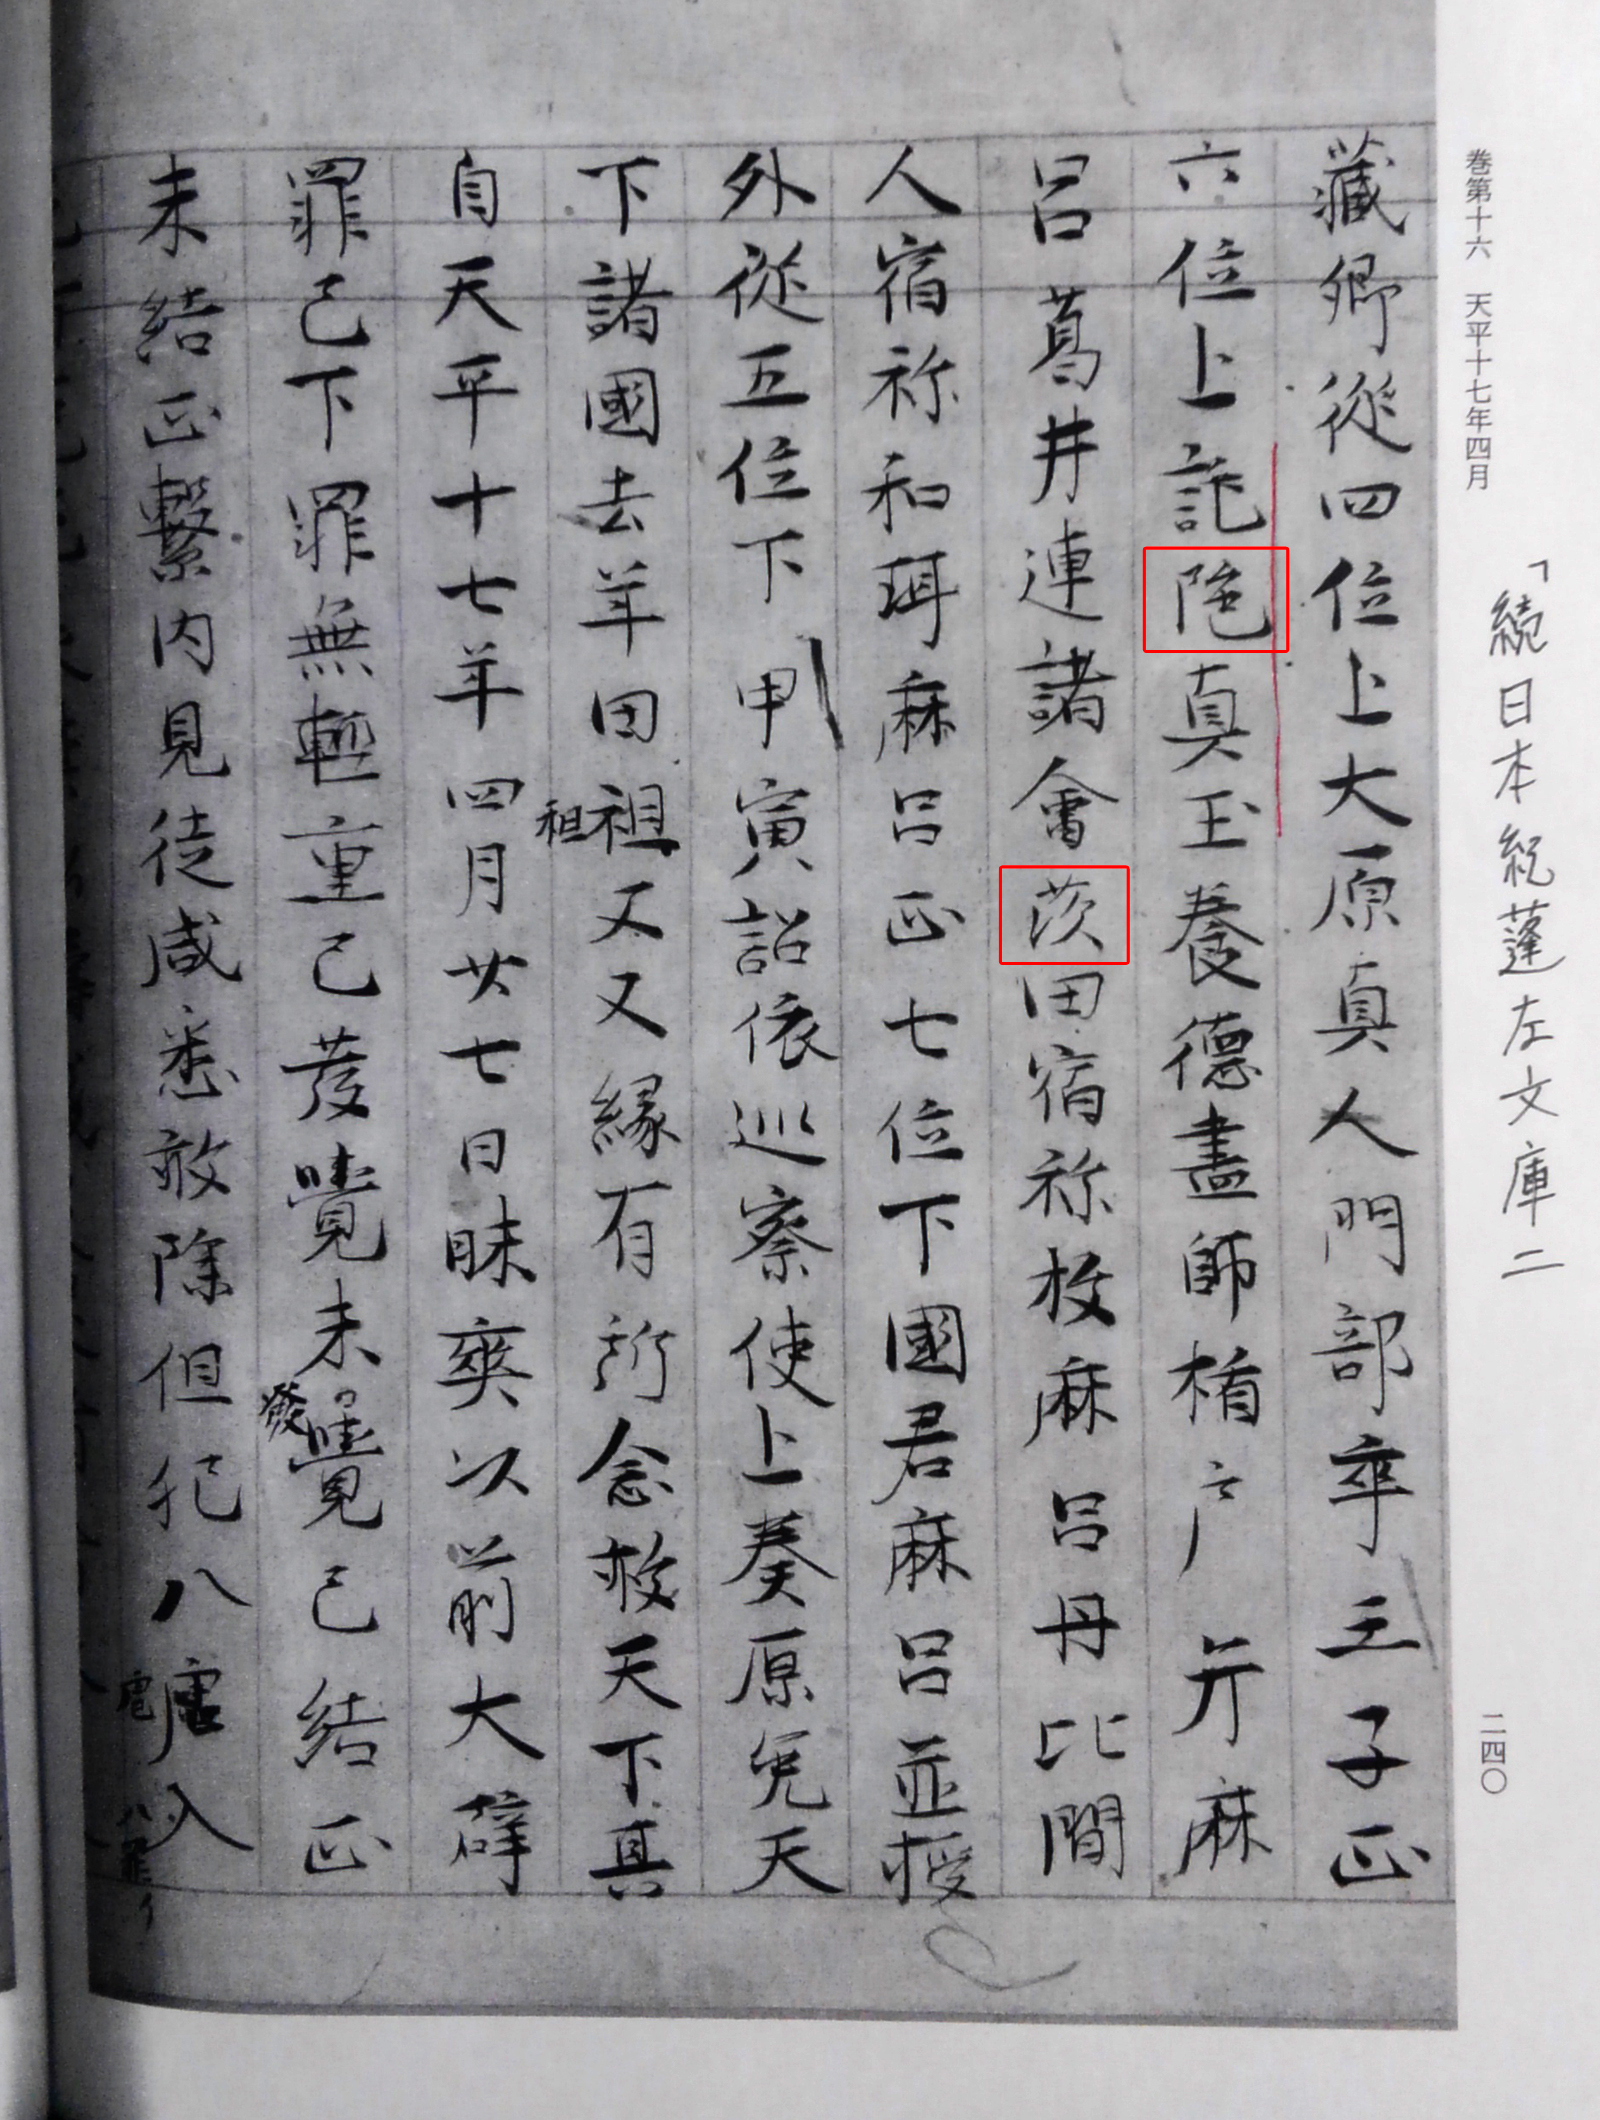 巻第十六　天平十七年四月
「続日本紀蓬左文庫二
二四〇
藏卿從四位上大原真人門部卒三子正
六位上託陁真玉養德畫師楯户弁麻
呂葛井連諸會茨田宿祢枚麻呂丹比間
人宿祢和珥麻呂正七位下國君麻呂並授
外從五位下　甲寅詔依巡察使上奏原免天
下諸國去年田祖又又縁有所念救天下其
租
自天平十七年四月廿七日昧爽以前大辟
罪已下罪無輕重已發覺未覺已結正
發
未結正繋内見徒咸悉放除但犯八虐入